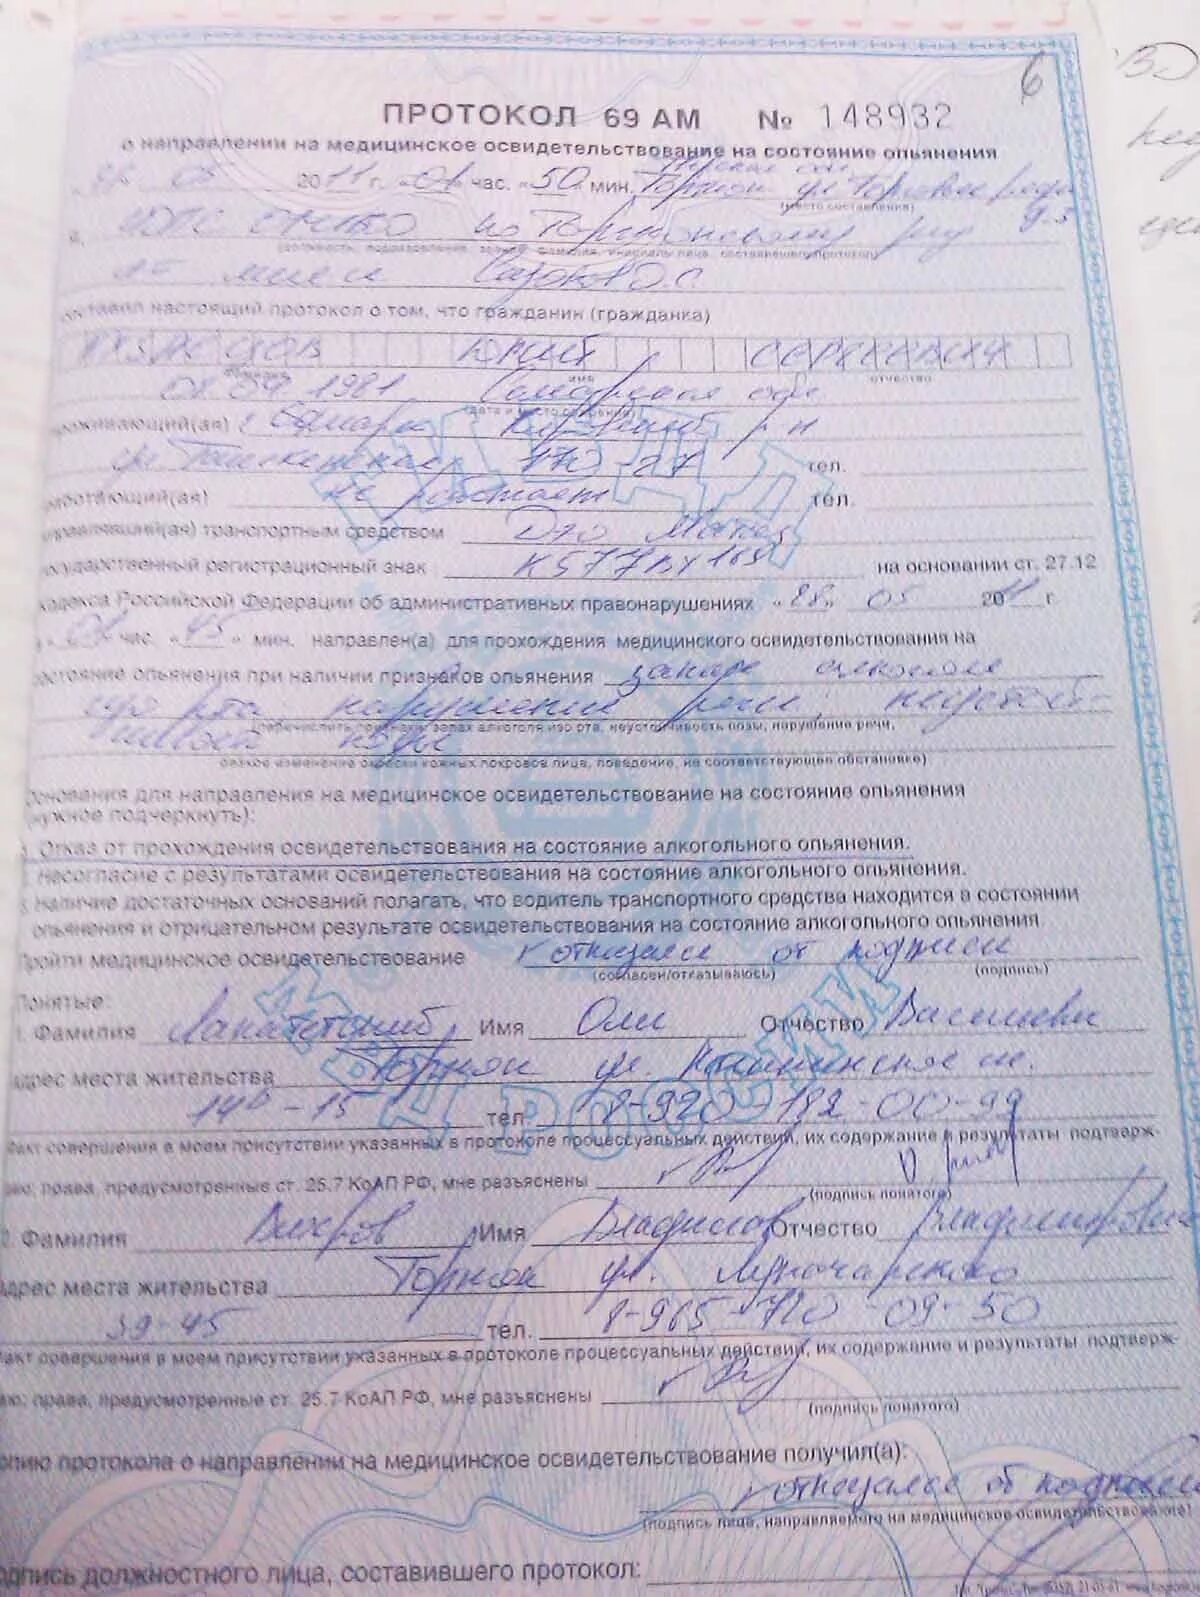 6
ПРОТОКОЛ 69 АМ № 148932
о направлении на медицинское освидетельствование на состояние опьянения
05 2011 г. «01» час. «50» мин. Торжок ул
(место составления)
ДПС по Торжокскому
(должность, подразделение, звание, фамилия, инициалы лица, составившего протокол)
составил настоящий протокол о том, что гражданин (гражданка)
ЮРИЙ СЕРГЕЕВИЧ
фамилия имя отчество
1981 Самарская обл
(дата и место рождения)
проживающий(ая) г Самара р-н
ул. 170-27 тел.
работающий(ая) не работает тел.
управлявший(ая) транспортным средством Дэо Матиз
государственный регистрационный знак К577ВУ 169 на основании ст. 27.12
Кодекса Российской Федерации об административных правонарушениях «28» 05 2011 г.
в «01» час. «45» мин. направлен(а) для прохождения медицинского освидетельствования на
состояние опьянения при наличии признаков опьянения запаха алкоголя
изо рта нарушение речи, неустой-
чивость позы
(перечислить признаки: запах алкоголя изо рта, неустойчивость позы, нарушение речи,
резкое изменение окраски кожных покровов лица, поведение, не соответствующее обстановке)
Основания для направления на медицинское освидетельствование на состояние опьянения
(нужное подчеркнуть):
1. Отказ от прохождения освидетельствования на состояние алкогольного опьянения.
2. Несогласие с результатами освидетельствования на состояние алкогольного опьянения.
3. Наличие достаточных оснований полагать, что водитель транспортного средства находится в состоянии
опьянения и отрицательном результате освидетельствования на состояние алкогольного опьянения
Пройти медицинское освидетельствование отказался от подписи
(согласен/отказываюсь) (подпись)
Понятые:
1. Фамилия Имя Отчество Васильеви
Адрес места жительства Торжок ул. Калининское ш.
14в-15 тел. 8-920-182-00-99
Факт совершения в моем присутствии указанных в протоколе процессуальных действий, их содержание и результаты подтверж-
даю; права, предусмотренные ст. 25.7 КоАП РФ, мне разъяснены
(подпись понятого)
2. Фамилия Вихров Имя Владислав Отчество Владимирович
Адрес места жительства Торжок ул. Луначарского
39-45 тел. 8-965-720-09-50
Факт совершения в моем присутствии указанных в протоколе процессуальных действий, их содержание и результаты подтверж-
даю; права, предусмотренные ст. 25.7 КоАП РФ, мне разъяснены
(подпись понятого)
Копию протокола о направлении на медицинское освидетельствование получил(а):
отказался от подписи
(подпись лица, направляемого на медицинское освидетельствование)
Подпись должностного лица, составившего протокол: